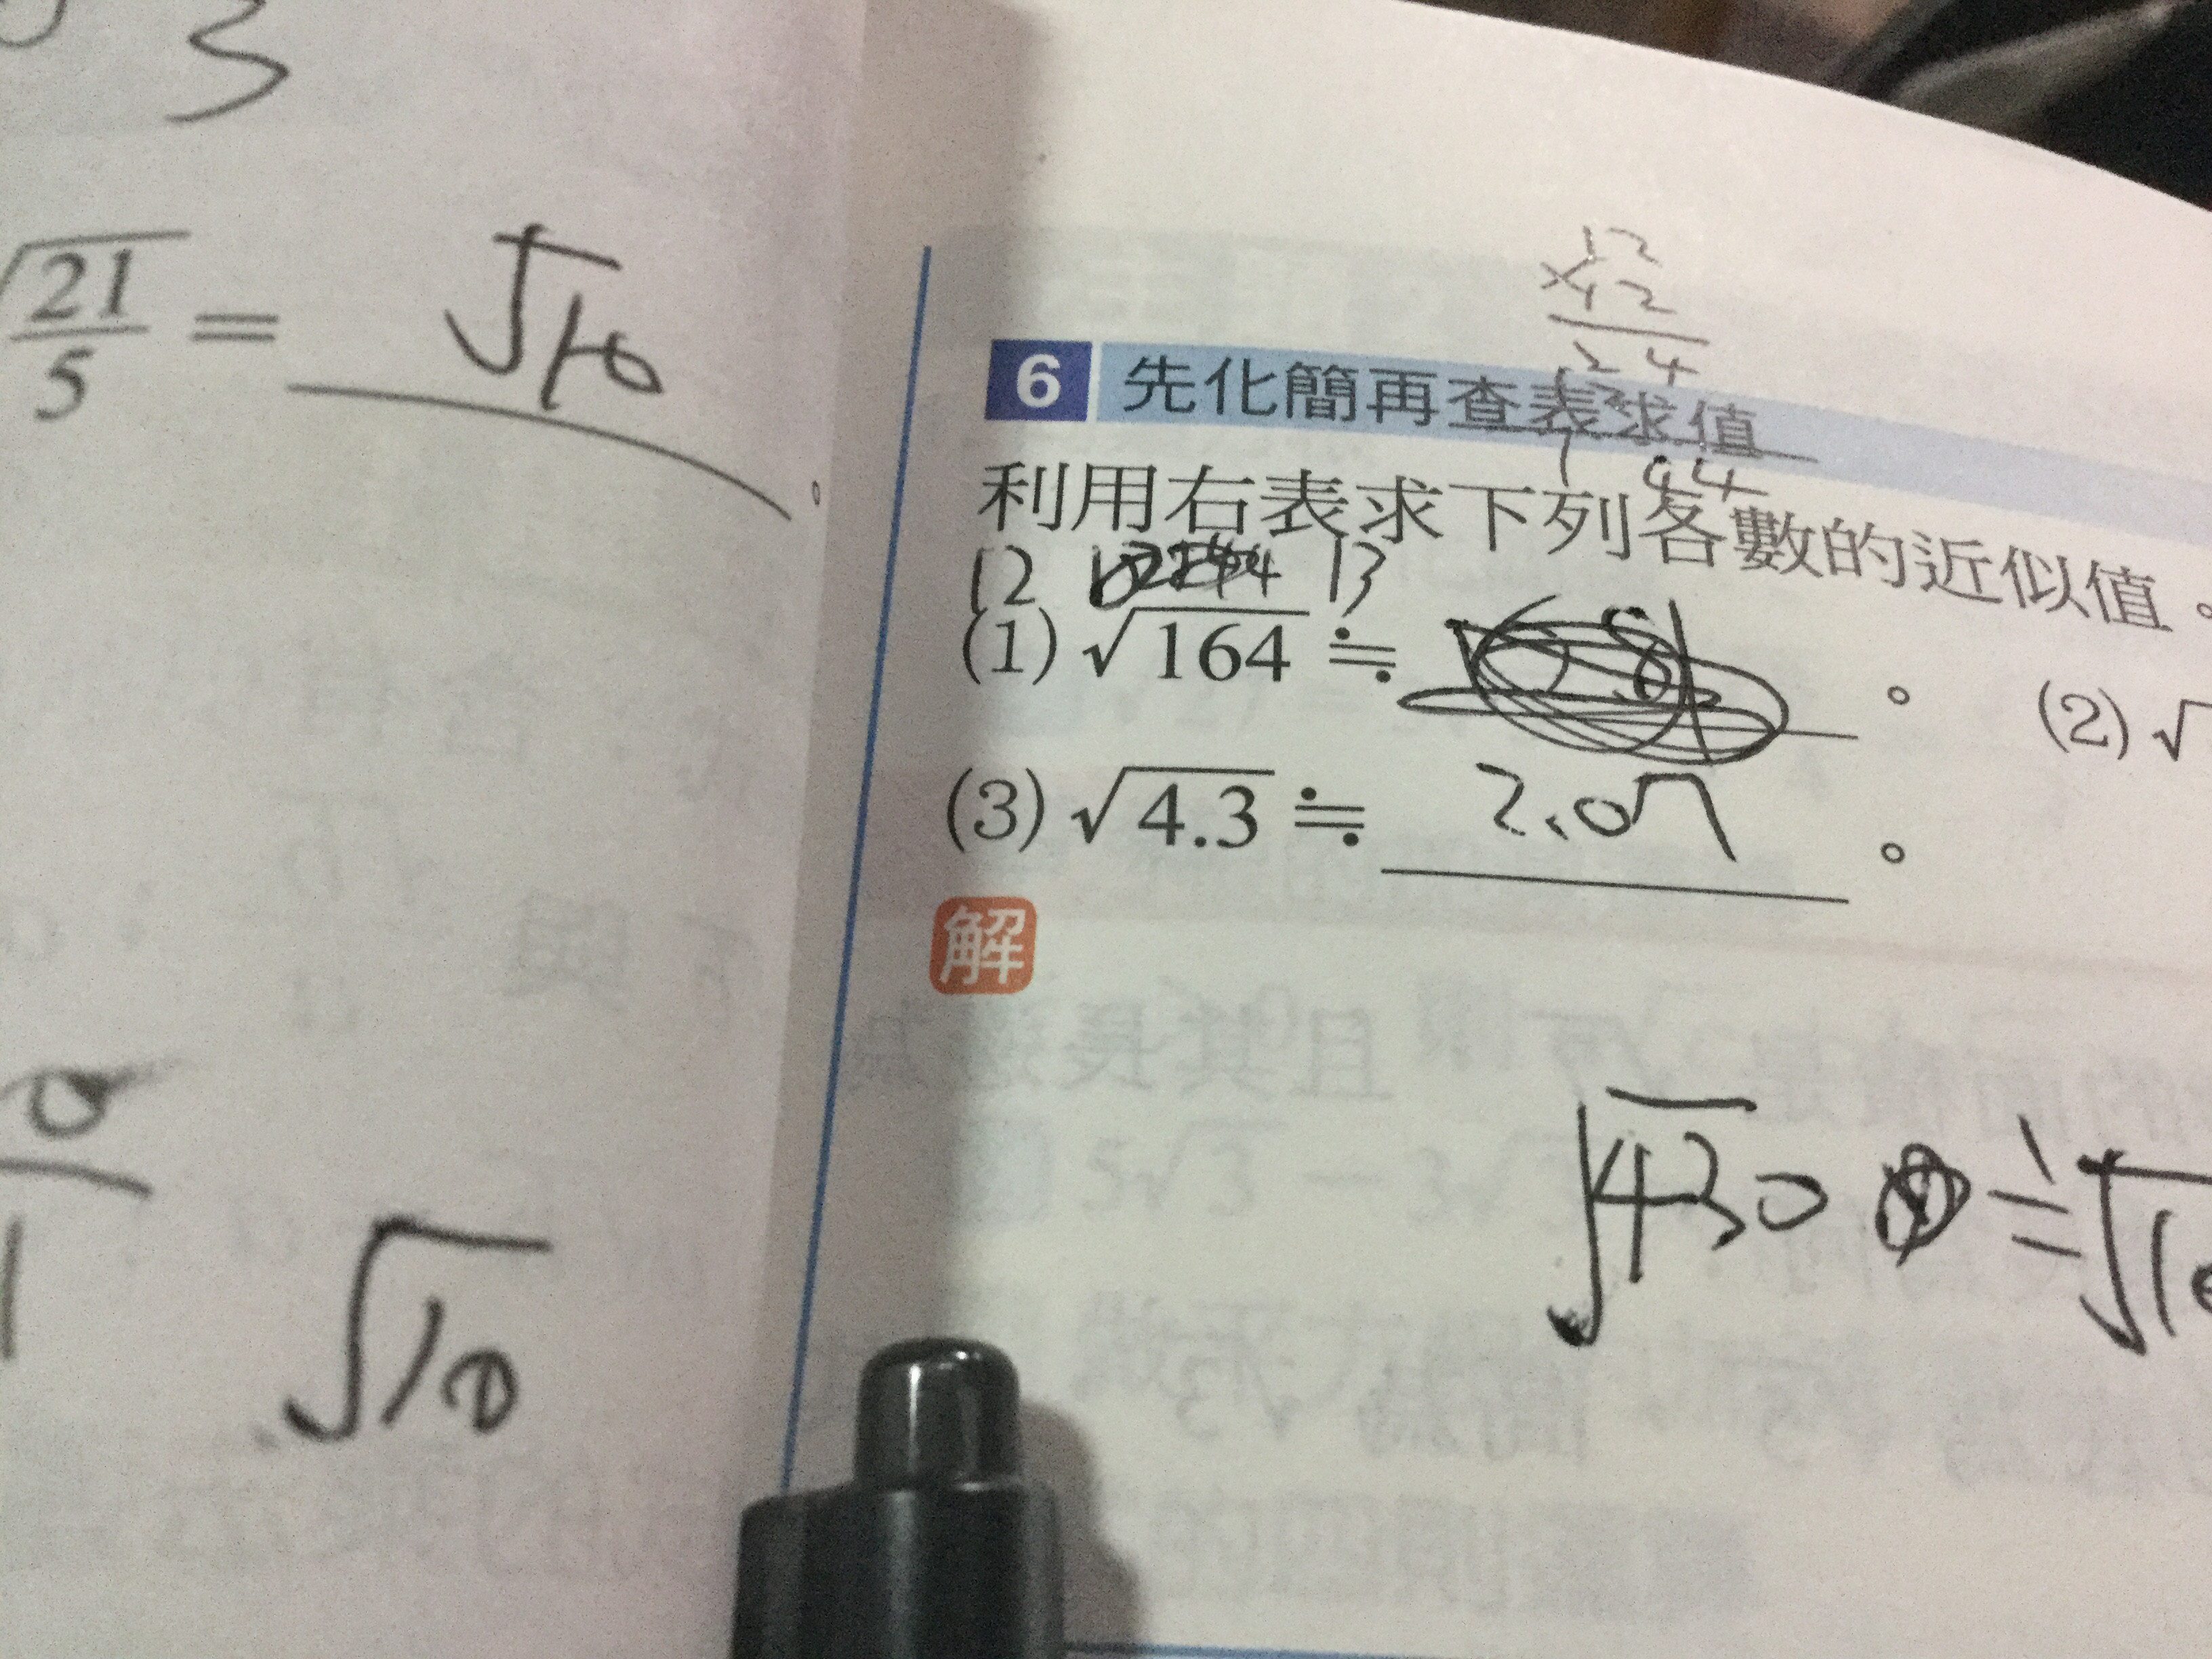 3
√21/5 = √10
√10
12
×12
24
144
6 先化簡再查表求值
利用右表求下列各數的近似值。
12 13
(1) √164 ≒ 。 (2) √
(3) √4.3 ≒ 2.07 。
解
√430 ≒ √1